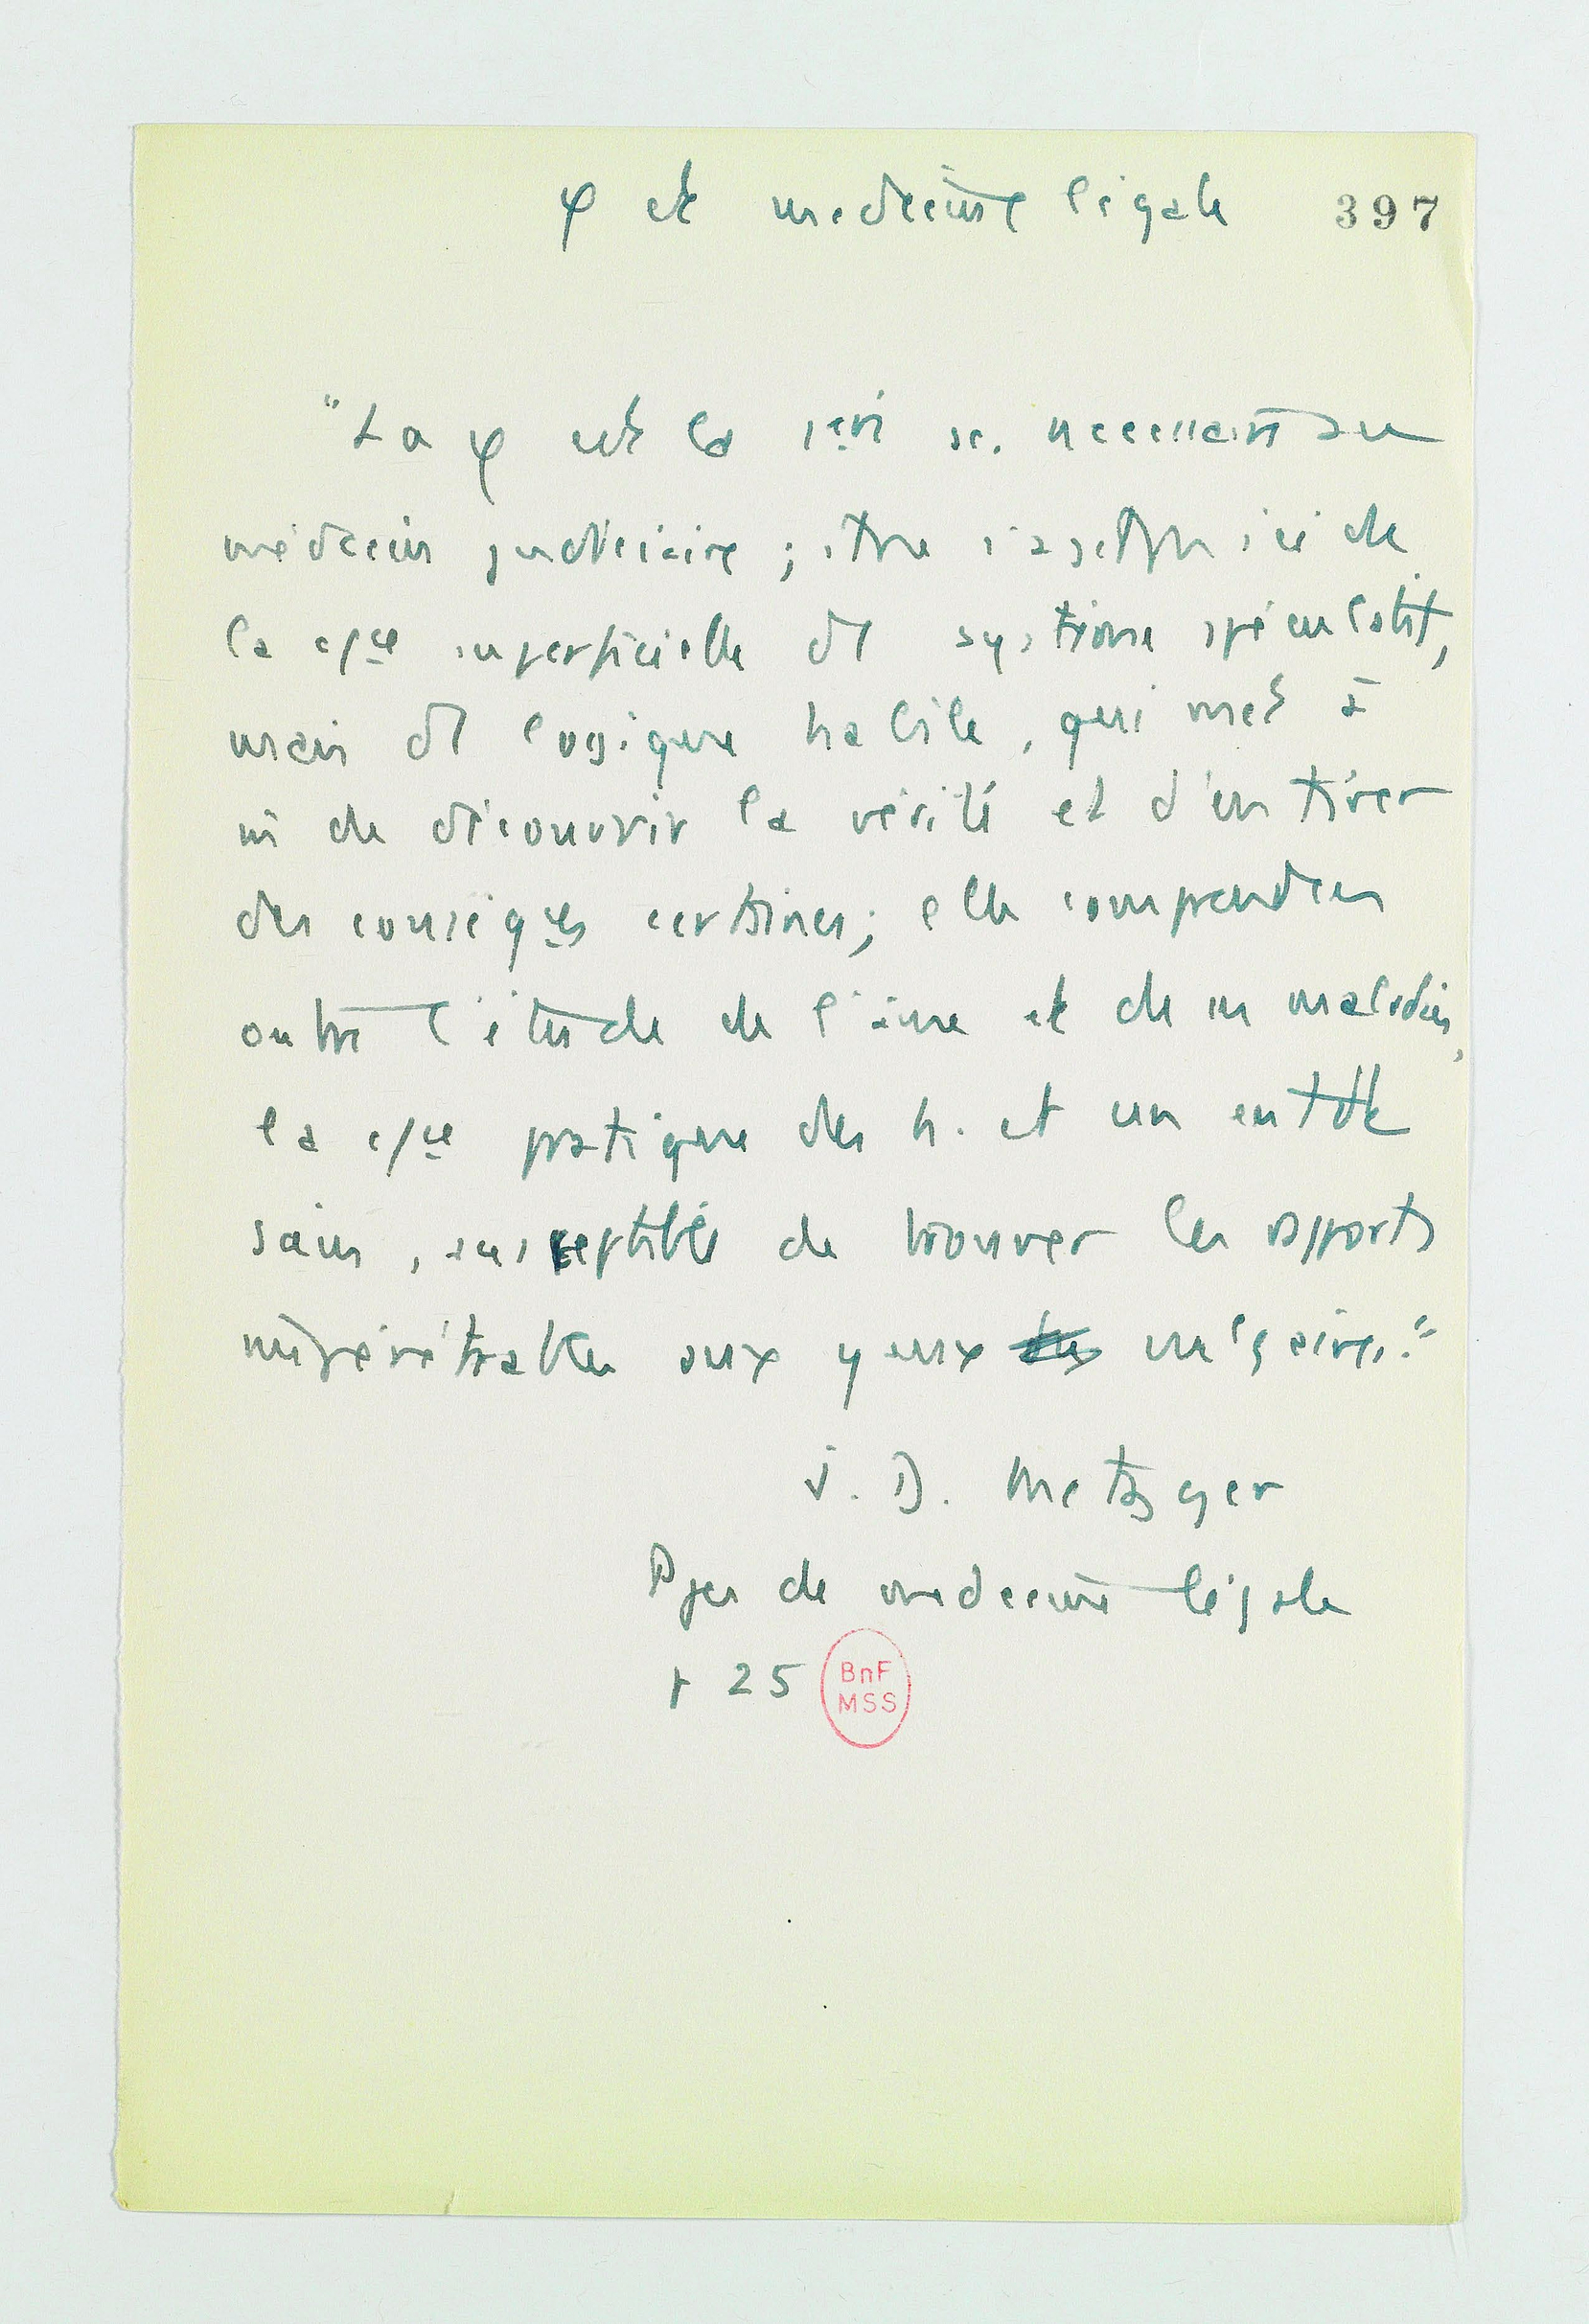 φ et medecine légale 397
"La φ est la 1ère sc. necessaire au
médecin judiciaire ; il ne s'agit pas ici de
la c/ce superficielle d'1 système spéculatif,
mais d'1 logique habile, qui met à
m de découvrir la vérité et d'en tirer
des conséqces certaines ; elle comprend en
outre l'étude de l'âme et de ses maladies,
la c/ce pratique des h. et un entdt
sain, susceptible de trouver les rapports
impénétrables aux yeux vulgaires."
J. D. Metzger
Ppes de medecine légale
p 25
BnF
MSS